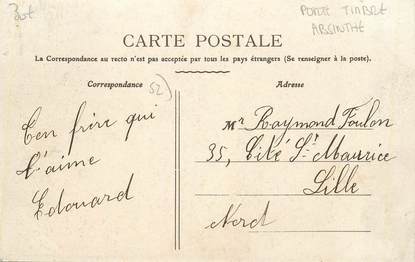 30f
PORTE TIMBRE
ABSINTHE
CARTE POSTALE
La Correspondance au recto n'est pas acceptée par tous les pays étrangers (Se renseigner à la poste).
Correspondance
52)
Adresse
Ton frère qui
t'aime
Edouard
Mr Raymond Foulon
35, Cité St Maurice
Lille
Nord